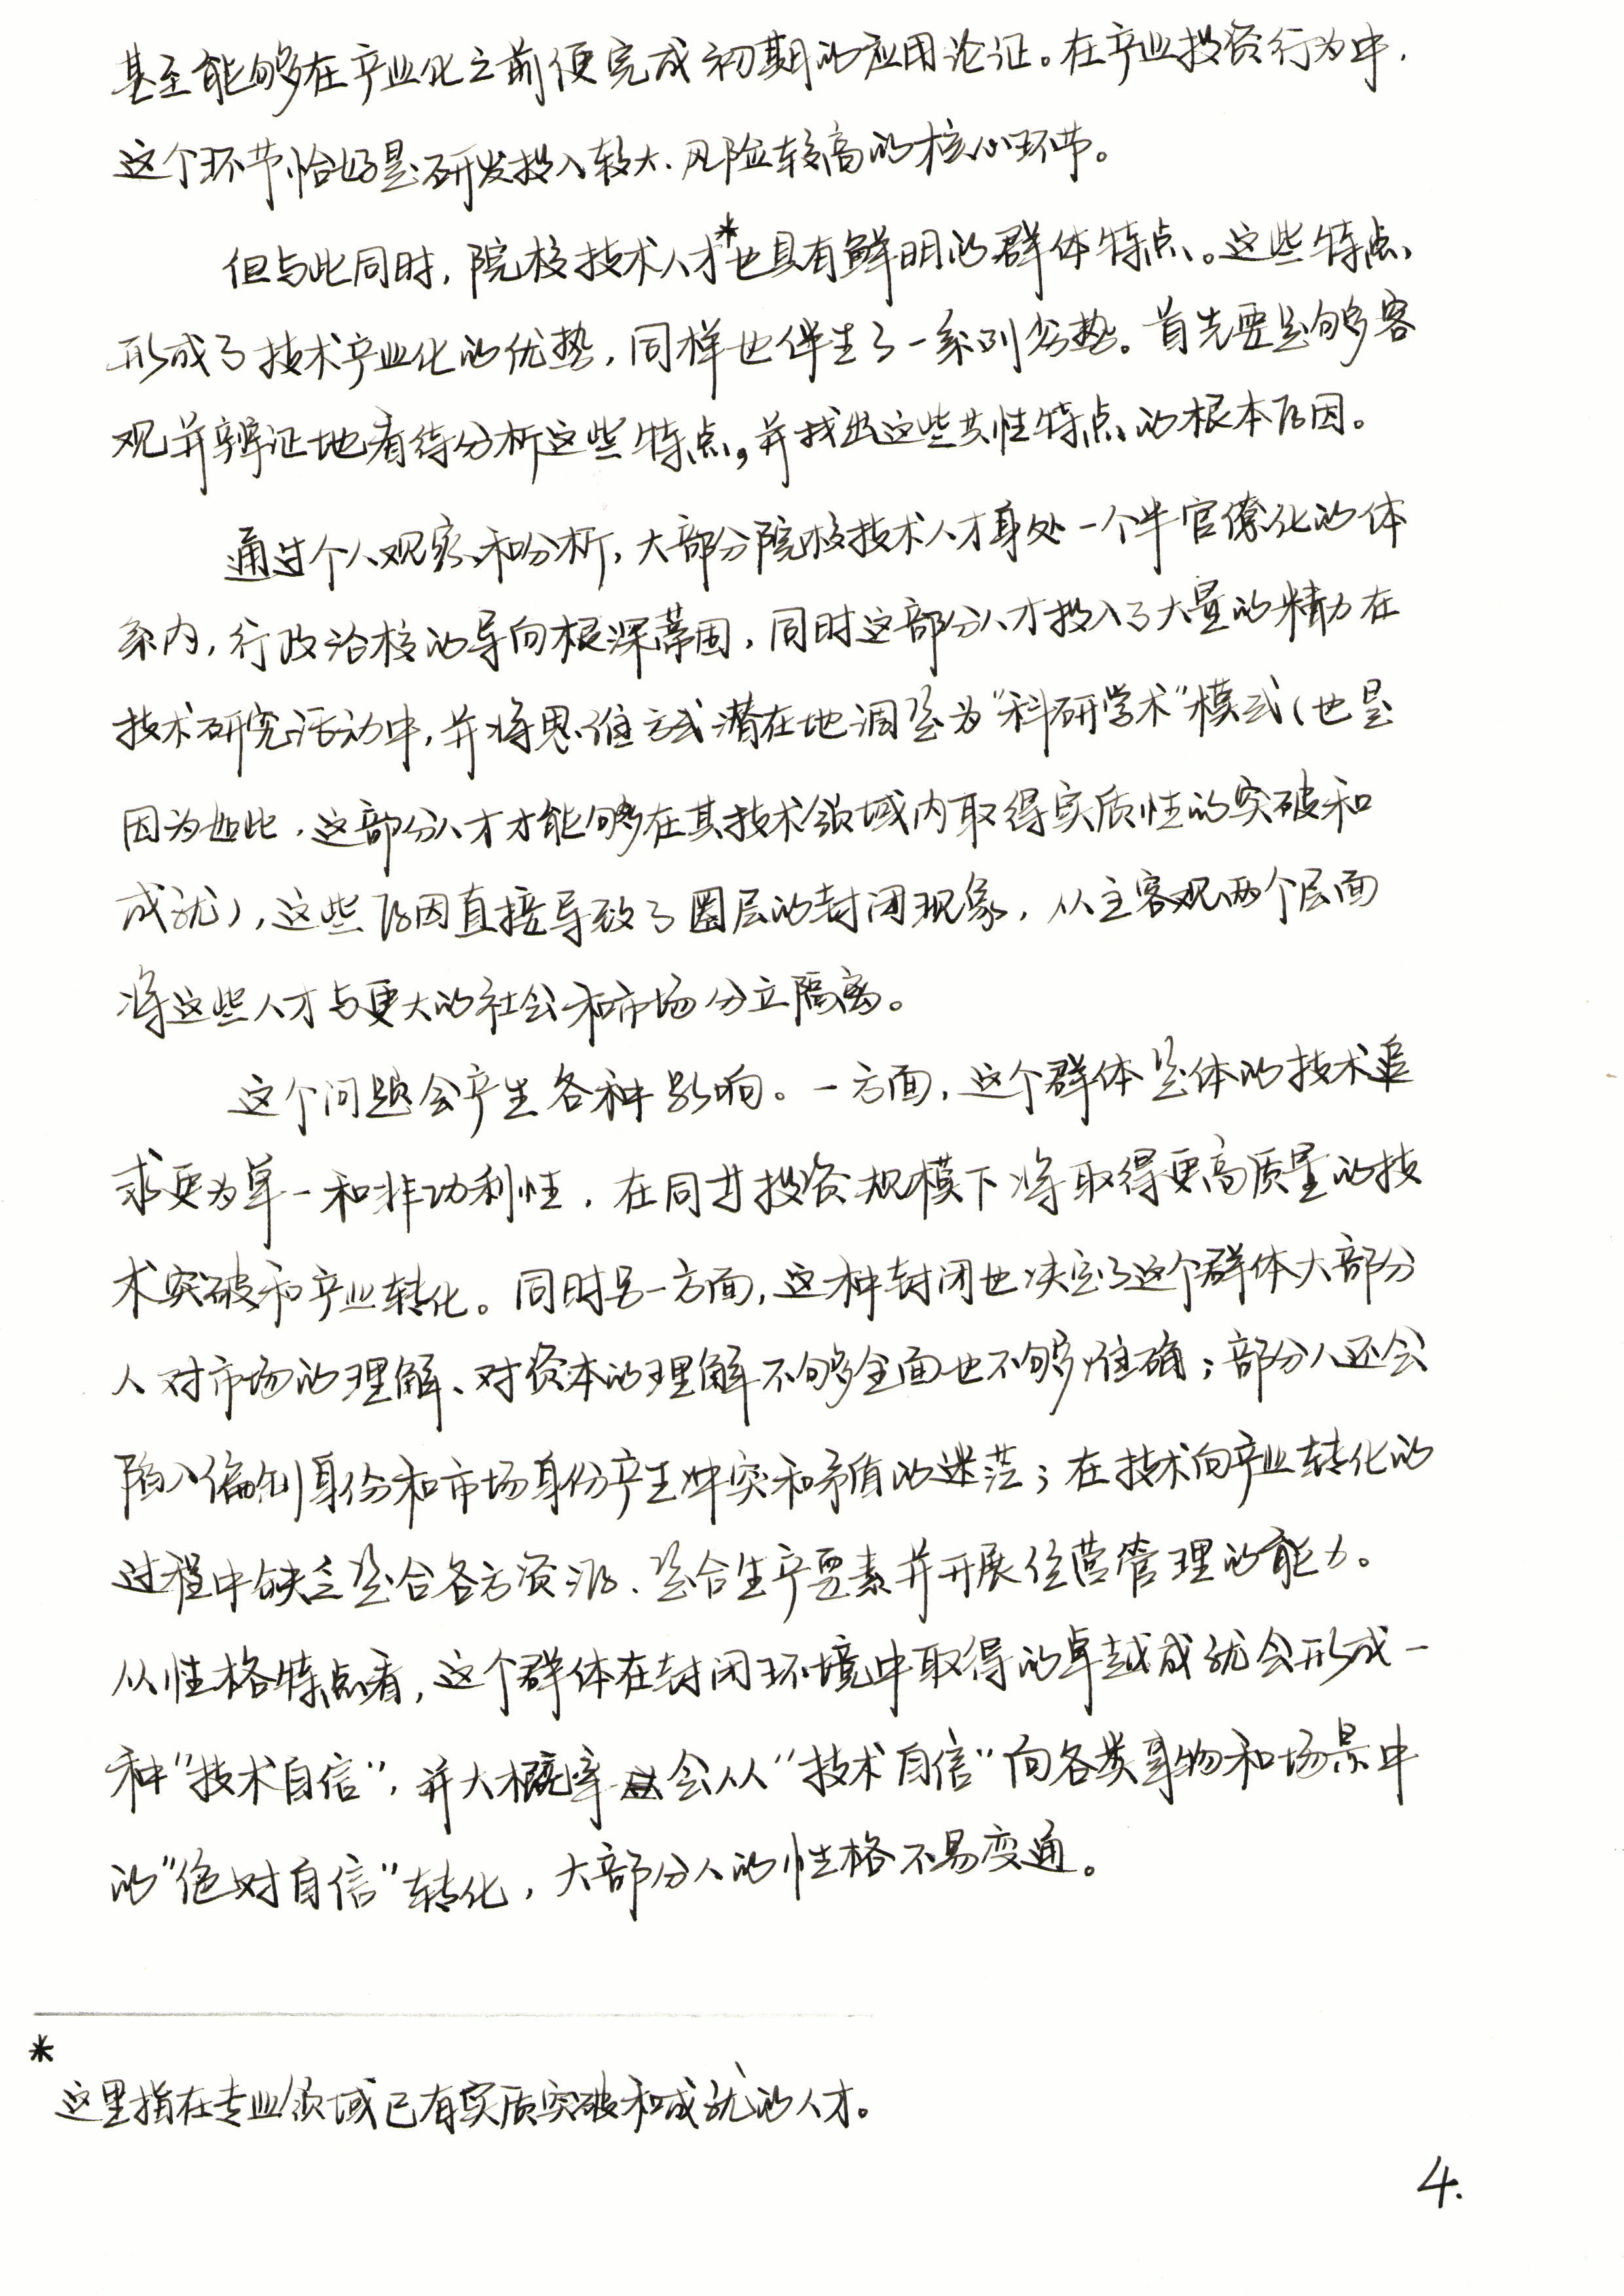 甚至能够在产业化之前便完成初期的应用论证。在产业投资行为中,
这个环节恰好是研发投入较大、风险较高的核心环节。
但与此同时,院校技术人才*也具有鲜明的群体特点。这些特点
形成了技术产业化的优势,同样也伴生了一系列劣势。首先要足够客
观并辨证地看待分析这些特点,并找出这些共性特点的根本原因。
通过个人观察和分析,大部分院校技术人才身处一个半官僚化的体
系内,行政治校的导向根深蒂固,同时这部分人才投入了大量的精力在
技术研究活动中,并将思维方式潜在地调整为“科研学术”模式(也是
因为如此,这部分人才才能够在其技术领域内取得实质性的突破和
成就),这些原因直接导致了圈层的封闭现象,从主客观两个层面
将这些人才与更大的社会和市场分立隔离。
这个问题会产生各种影响。一方面,这个群体整体的技术追
求更为单一和非功利性,在同等投资规模下将取得更高质量的技
术突破和产业转化。同时另一方面,这种封闭也决定了这个群体大部分
人对市场的理解、对资本的理解不够全面也不够准确;部分人还会
陷入编制身份和市场身份产生冲突和矛盾的迷茫;在技术向产业转化的
过程中缺乏整合各方资源、整合生产要素并开展经营管理的能力。
从性格特点看,这个群体在封闭环境中取得的卓越成就会形成一
种“技术自信”,并大概率会从“技术自信”向各类事物和场景中
的“绝对自信”转化,大部分人的性格不易变通。
*
这里指在专业领域已有实质突破和成就的人才。
4.